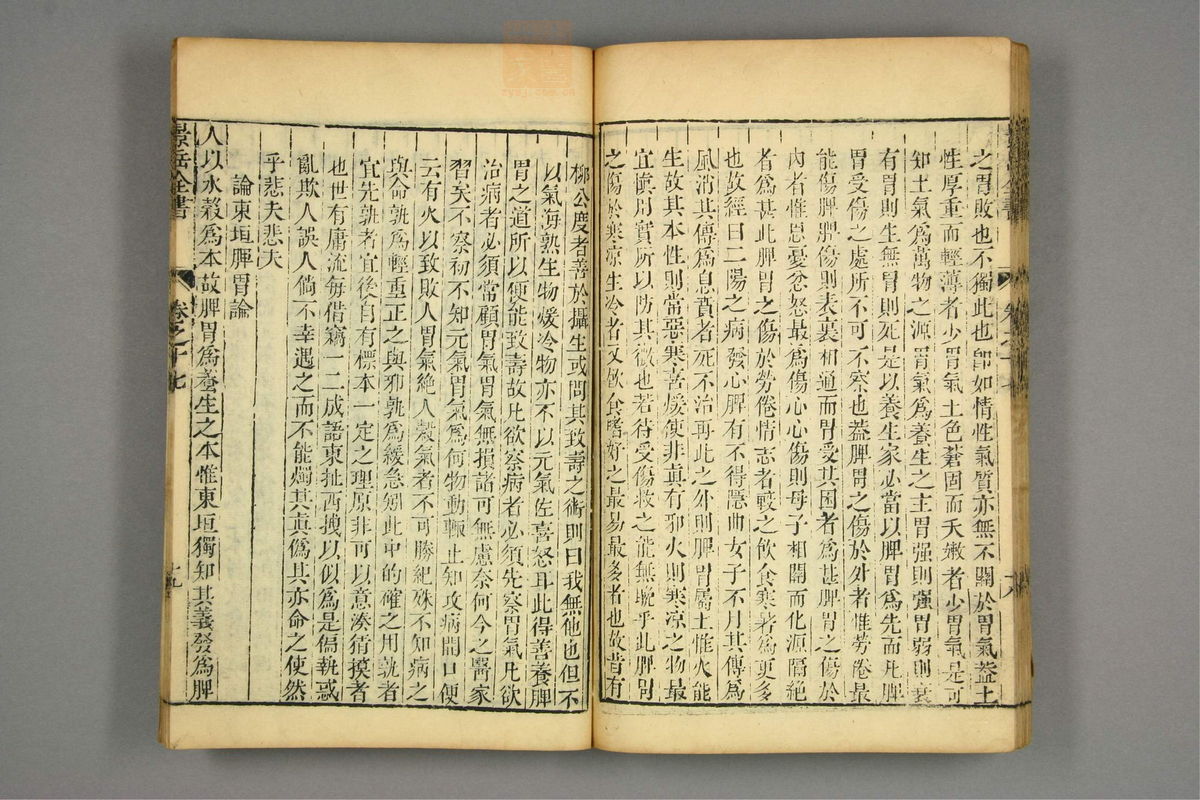 之胃敗也不獨此也卽如情性氣質亦無不關於胃氣蓋土
性厚重而輕薄者少胃氣土色蒼固而夭嫩者少胃氣是可
知土氣爲萬物之源胃氣爲養生之主胃强則强胃弱則衰
有胃則生無胃則死是以養生家必當以脾胃爲先而凡脾
胃受傷之處所不可不察也蓋脾胃之傷於外者惟勞倦最
能傷脾脾傷則表裏相通而胃受其困者爲甚脾胃之傷於
內者惟思憂忿怒最爲傷心心傷則母子相關而化源隔絕
者爲甚此脾胃之傷於勞倦情志者較之飲食寒暑爲更多
也故經曰二陽之病發心脾有不得隱曲女子不月其傳爲
風消其傳爲息賁者死不治再此之外則脾胃屬土惟火能
生故其本性則常惡寒喜煖使非眞有邪火則寒涼之物最
宜愼用實所以防其微也若待受傷救之能無晚乎此脾胃
之傷於寒涼生冷者又飲食嗜好之最易最多者也故昔有
柳公度者善於攝生或問其致壽之術則曰我無他也但不
以氣海熟生物煖冷物亦不以元氣佐喜怒耳此得善養脾
胃之道所以便能致壽故凡欲察病者必須先察胃氣凡欲
治病者必須常顧胃氣胃氣無損諸可無慮奈何今之醫家
習矣不察初不知元氣胃氣爲何物動輒止知攻病開口便
云有火以致敗人胃氣絕人穀氣者不可勝紀殊不知病之
與命孰爲輕重正之與邪孰爲緩急矧此中的確之用孰者
宜先孰者宜後自有標本一定之理原非可以意湊猜摸者
也世有庸流每借竊一二成語東扯西拽以似爲是偏執惑
亂欺人誤人倘不幸遇之而不能燭其眞僞其亦命之使然
乎悲夫悲夫
論東垣脾胃論
人以水穀爲本故脾胃爲養生之本惟東垣獨知其義發爲脾
景岳全書
卷之十七
十九